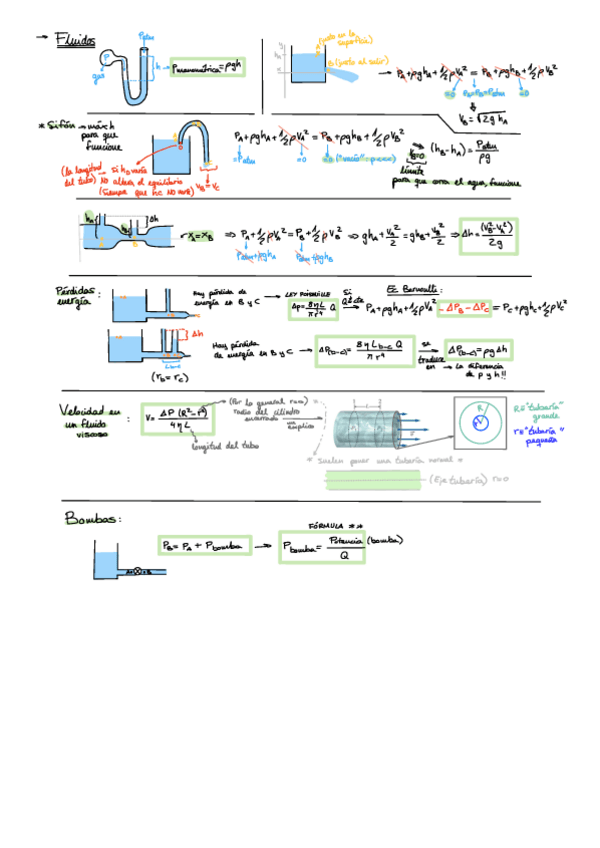 → Fluidos
Patm
P
gas
h
Pmanométrica = ρgh
y
hA
A (justo en la superficie)
B (justo al salir)
→ PA+ρghA+1/2ρVA² = PB+ρghB+1/2ρVB²
=0 PA=PB=Patm =0
VB=√2g hA
* Sifón → márch para que funcione
(la longitud del tubo) → si hB varía NO altera el equilibrio (siempre que hC no varíe)
VB=VC
PA+ρghA+1/2ρVA² = PB+ρghB+1/2ρVB²
=Patm =0 =0 (↑vacío
VB=0
(hB-hA) = Patm/ρg
límite para que corra el agua, funcione
hA
hB
Δh
A
B
→ XA=XB ⇒ PA+1/2ρVA² = PB+1/2ρVB² ⇒ ghA+VA²/2 = ghB+VB²/2 ⇒ Δh = (VB²-VA²)/2g
Patm+ρghA Patm+ρghB
Pérdidas energía:
Hay pérdida de energía en B y C → LEY POISEUILLE
Δp=8ηL/πr⁴ Q
Si Q=cte →
Ec Bernoulli:
PA+ρghA+1/2ρVA² -ΔPB-ΔPC = PC+ρghC+1/2ρVC²
Δh
Lb-c
(rb=rc)
Hay pérdida de energía en B y C → ΔP(b-c) = 8ηLb-c Q/πr⁴
se traduce en →
ΔP(b-c)=ρgΔh
→ la diferencia de P y h!!
Velocidad en un fluido viscoso:
V= ΔP (R²-r²)/4ηL
→ (Por lo general r=0) = radio del cilindro
longitud del tubo
R="tubaría" grande
r="tubaría" pequeña
R
r
* Suelen poner una tubaría normal *
(Eje tubaría) r=0
Bombas:
PB = PA + Pbomba →
FÓRMULA **
Pbomba = Potencia (bomba)/Q